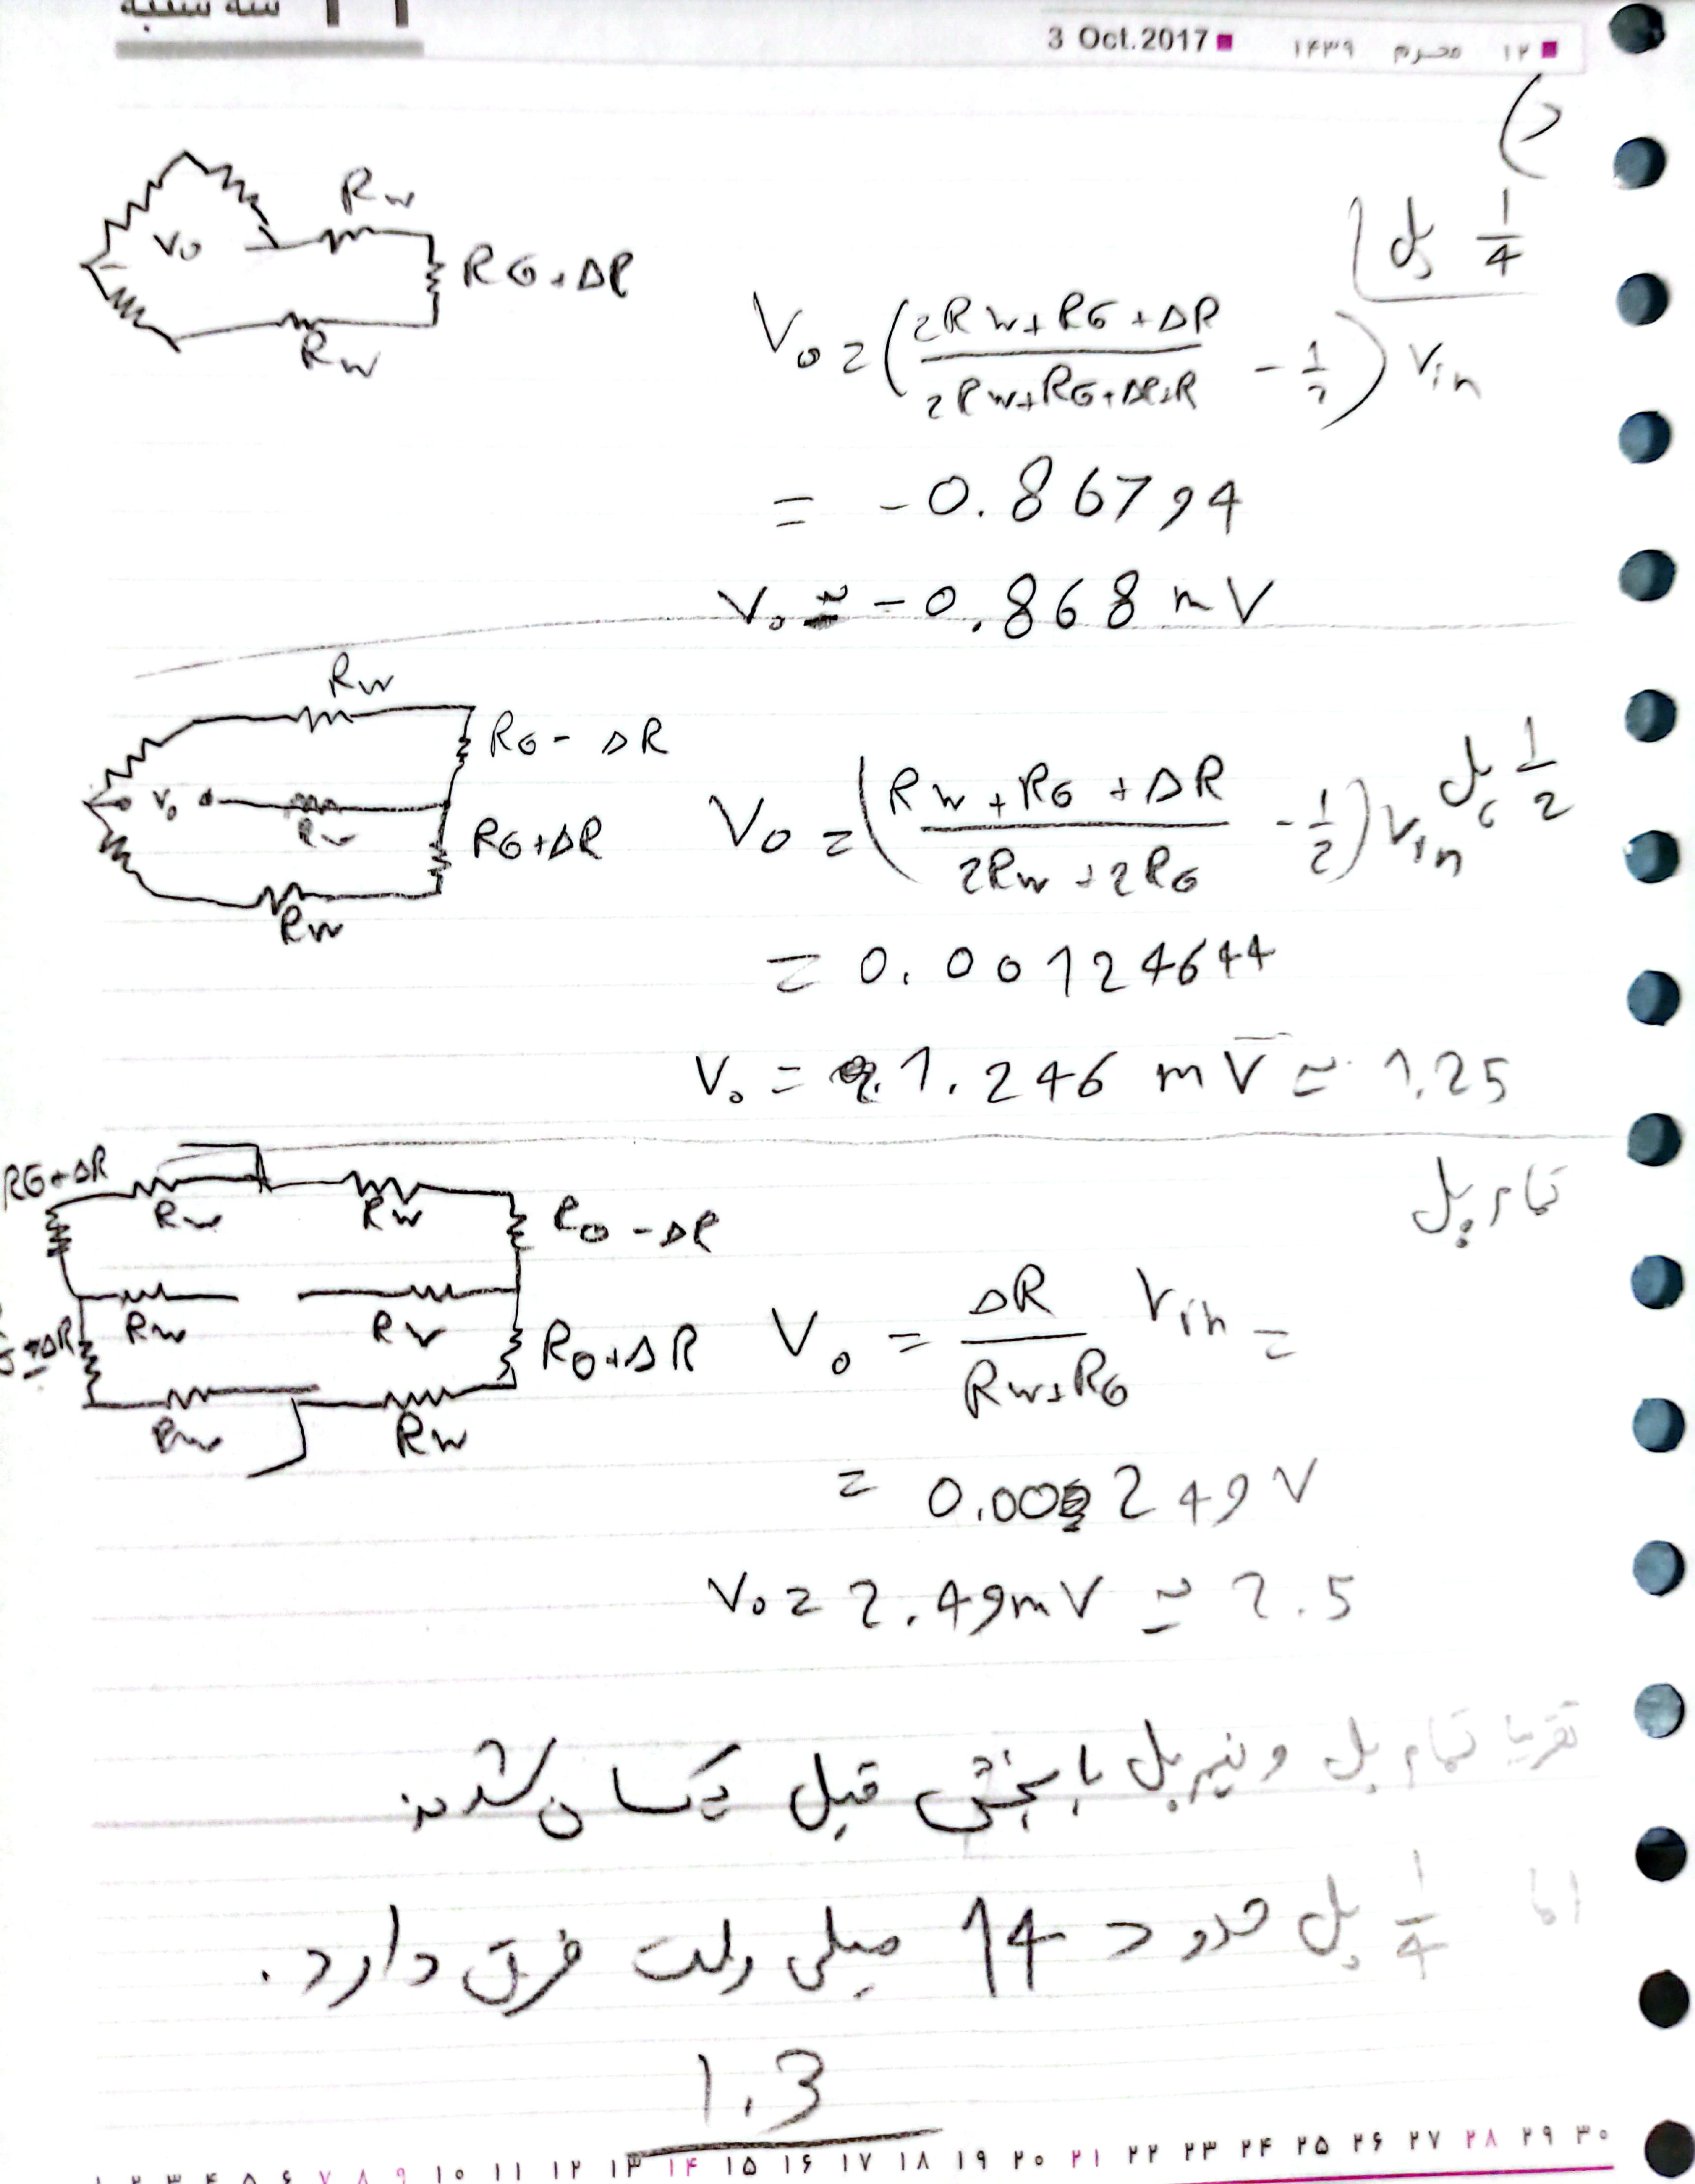 سه شنبه
3 Oct. 2017 ۱۲ محرم ۱۴۳۹
د)
1/4 پل
Rw
Vo
RG+ΔR
Rw
Vo = ( (2Rw+RG+ΔR) / (2Rw+RG+ΔR+R) - 1/2 ) Vin
= -0.86794
Vo ≈ -0.868 mV
1/2 پل
Rw
RG-ΔR
Vo
Rw
RG+ΔR
Rw
Vo = ( (Rw+RG+ΔR) / (2Rw+2RG) - 1/2 ) Vin
= 0.00124644
Vo = 1.246 mV ≈ 1.25
تمام پل
RG+ΔR
Rw Rw
RG-ΔR
Rw Rw
-ΔR
RG+ΔR
Rw Rw
Vo = ΔR / (Rw+RG) Vin =
= 0.00249 V
Vo = 2.49 mV ≈ 2.5
تقریبا تمام پل و نیم پل با بخش قبل یکسان شدند
اما 1/4 پل حدود 14 میلی ولت فرق دارد.
1.3
۱۰ ۱۱ ۱۲ ۱۳ ۱۴ ۱۵ ۱۶ ۱۷ ۱۸ ۱۹ ۲۰ ۲۱ ۲۲ ۲۳ ۲۴ ۲۵ ۲۶ ۲۷ ۲۸ ۲۹ ۳۰